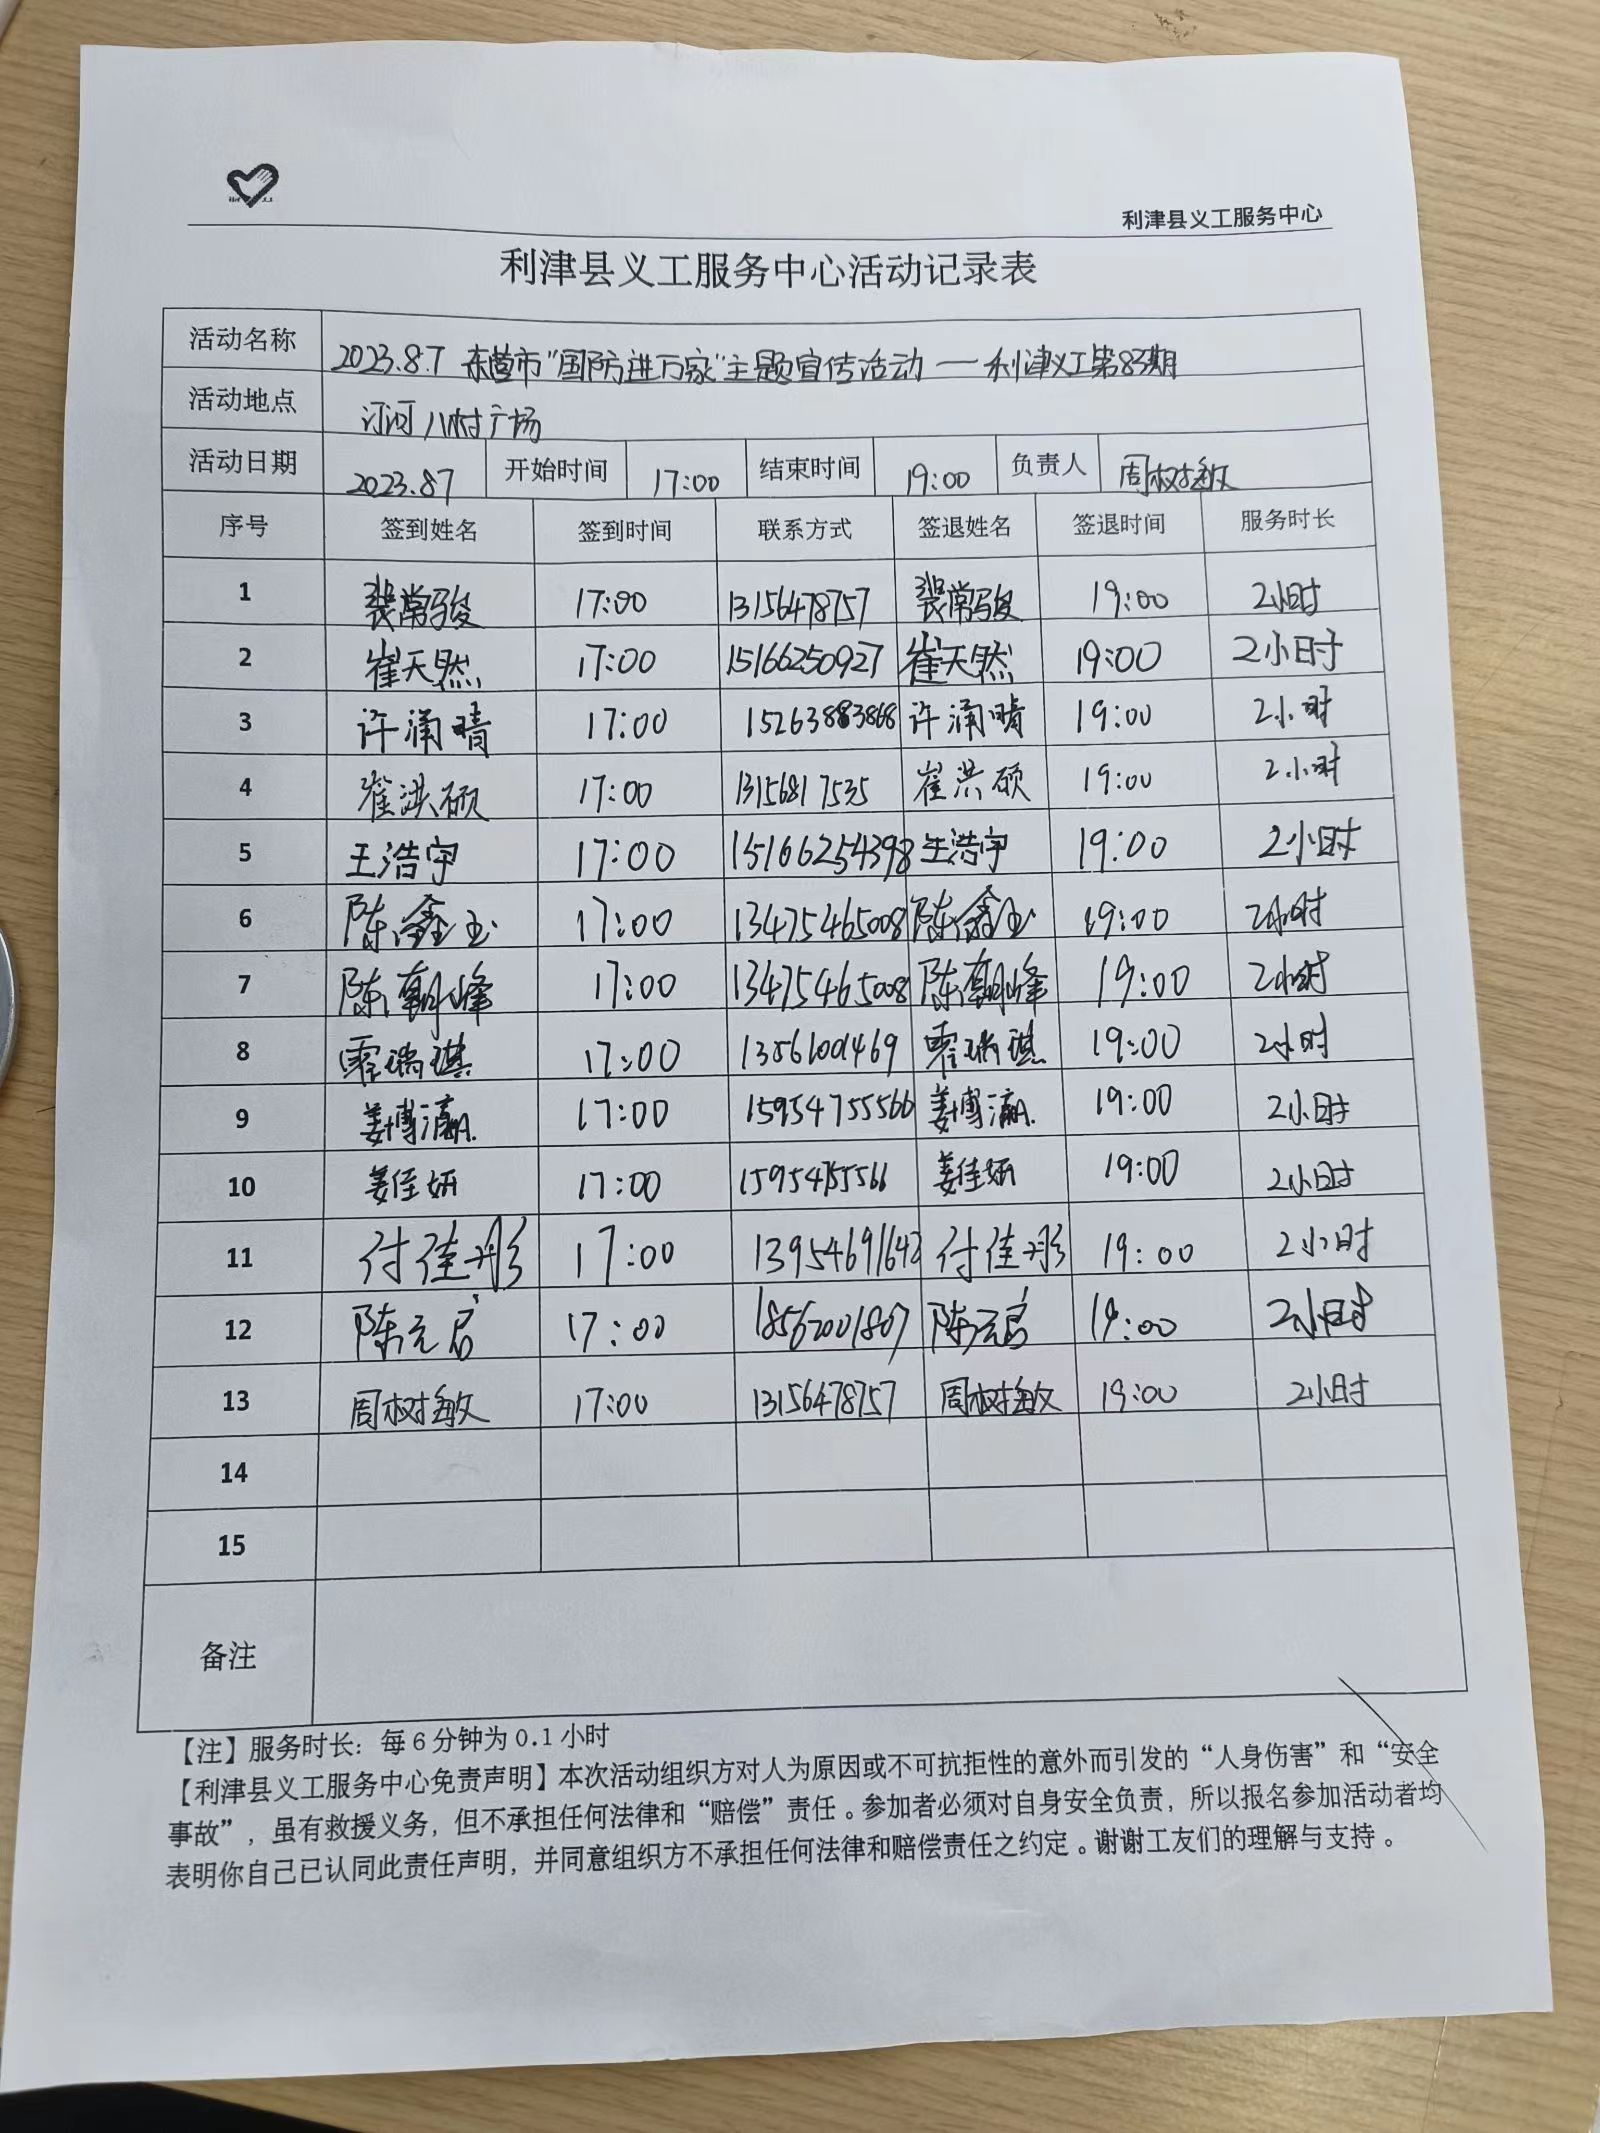 利津县义工服务中心
利津县义工服务中心活动记录表
活动名称 2023.8.7 东营市"国防进万家"主题宣传活动——利津义工第83期
活动地点 汀河八村广场
活动日期 2023.8.7 开始时间 17:00 结束时间 19:00 负责人 周树敏
序号 签到姓名 签到时间 联系方式 签退姓名 签退时间 服务时长
1 裴常骏 17:00 13156478757 裴常骏 19:00 2小时
2 崔天然 17:00 15166250927 崔天然 19:00 2小时
3 许涌晴 17:00 15263883868 许涌晴 19:00 2小时
4 崔洪硕 17:00 13156817535 崔洪硕 19:00 2小时
5 王浩宇 17:00 15166254398 王浩宇 19:00 2小时
6 陈鑫玉 17:00 13475465008 陈鑫玉 19:00 2小时
7 陈朝峰 17:00 13475465008 陈朝峰 19:00 2小时
8 霍瑞琪 17:00 19:00 2小时
9 姜博瀛 17:00 15954755566 姜博瀛 19:00 2小时
10 姜佳妍 17:00 15954755566 姜佳妍 19:00 2小时
11 付佳彤 17:00 13954691642 付佳彤 19:00 2小时
12 陈元启 17:00 18562001807 陈元启 19:00 2小时
13 周树敏 17:00 13156478757 周树敏 19:00 2小时
14
15
备注
【注】服务时长：每6分钟为0.1小时
【利津县义工服务中心免责声明】本次活动组织方对人为原因或不可抗拒性的意外而引发的“人身伤害”和“安全
事故”，虽有救援义务，但不承担任何法律和“赔偿”责任。参加者必须对自身安全负责，所以报名参加活动者均
表明你自己已认同此责任声明，并同意组织方不承担任何法律和赔偿责任之约定。谢谢工友们的理解与支持。